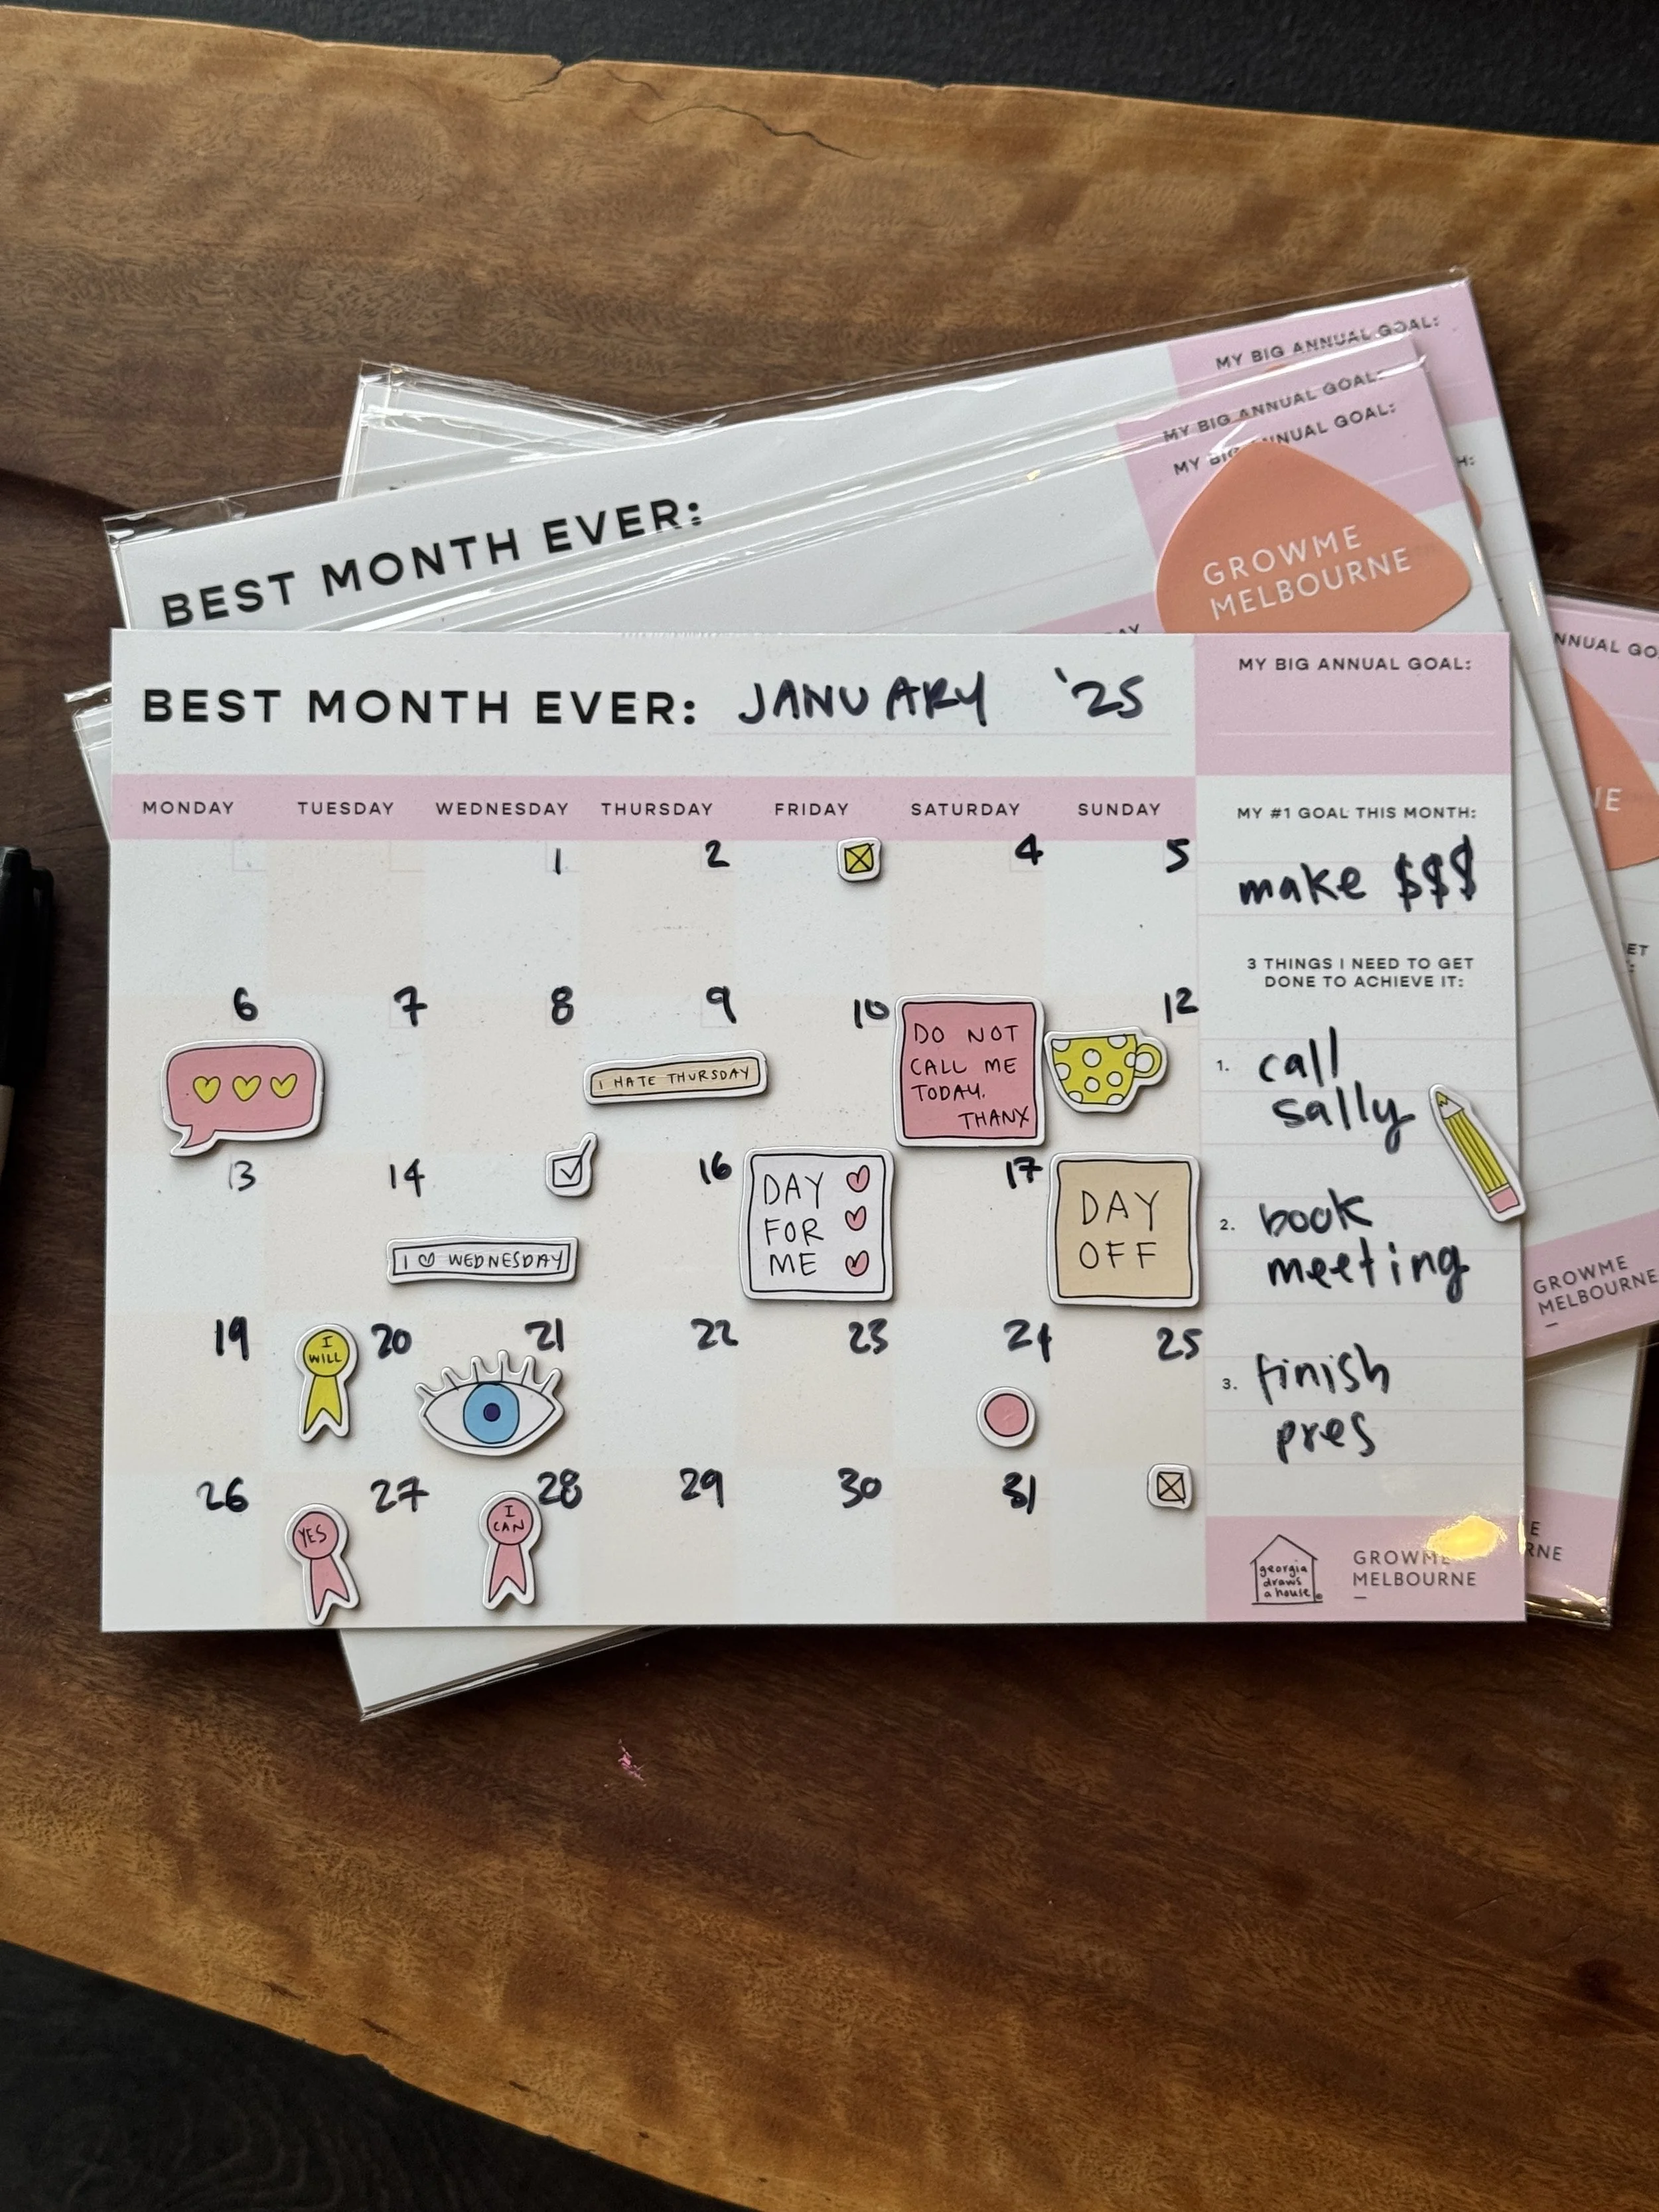 MY BIG ANNUAL GOAL:
MY BIG ANNUAL GOAL:
MY BIG ANNUAL GOAL:
BEST MONTH EVER:
GROWME
MELBOURNE
BEST MONTH EVER: JANUARY '25
MY BIG ANNUAL GOAL:
MONDAY TUESDAY WEDNESDAY THURSDAY FRIDAY SATURDAY SUNDAY
1 2 4 5
6 7 8 9 10 12
I HATE THURSDAY
DO NOT
CALL ME
TODAY.
THANX
13 14 16 17
I ♡ WEDNESDAY
DAY
FOR
ME
DAY
OFF
19 20 21 22 23 24 25
I
WILL
26 27 28 29 30 31
YES
I
CAN
MY #1 GOAL THIS MONTH:
make $$$
3 THINGS I NEED TO GET
DONE TO ACHIEVE IT:
1. call
sally
2. book
meeting
3. finish
pres
georgia
draws
a house
GROWME
MELBOURNE
GROWME
MELBOURNE